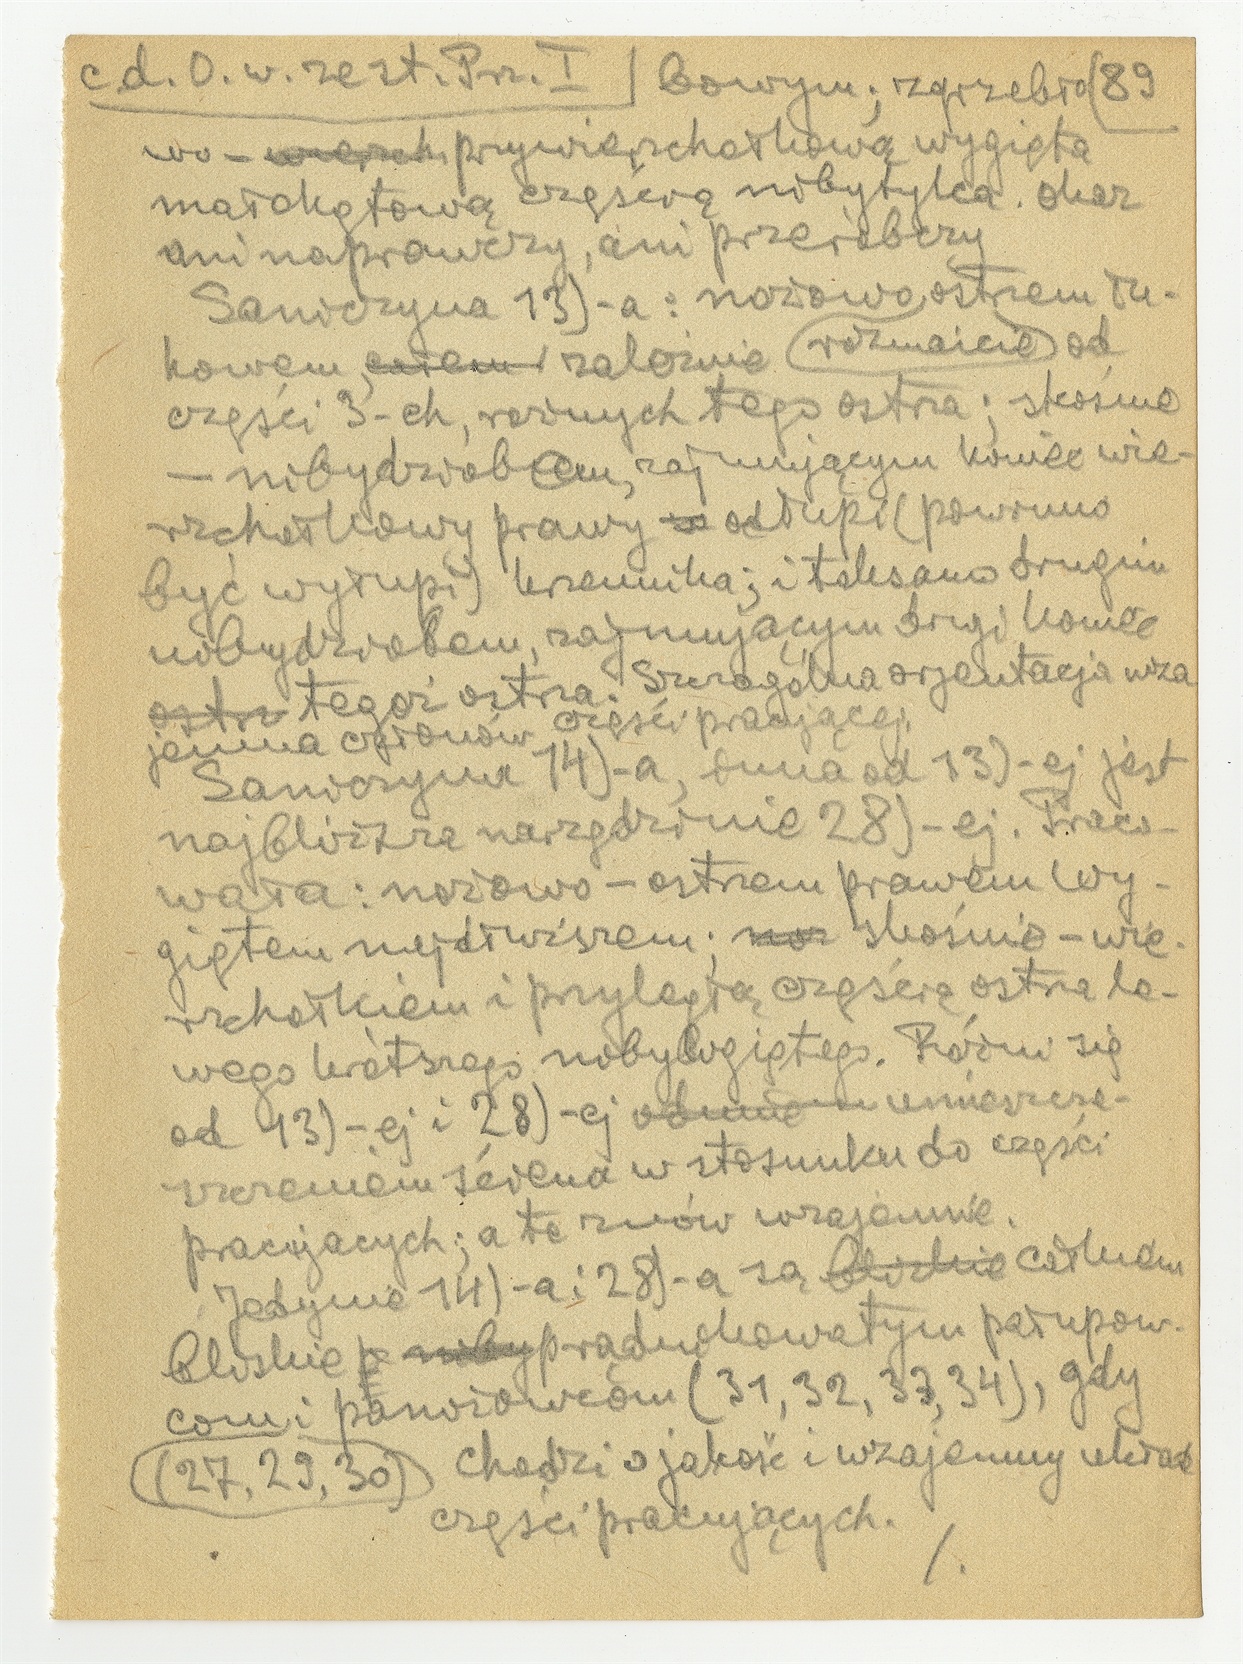 cd. O. w. zest. Prz. I | bowym; zgrzebło (89
wo – wierzch. przywierzchołkową wygiętą
małokątową częścią nibytylca. okaz
ani naprawczy, ani przeróbczy
Saniczyna 13)-a: nożowo, ostrzem łu-
kowem, całem zależnie rozmaicie od
części 3-ch, różnych tego ostrza; skośnie
– nibydziobem, zajmującym koniec wie-
rzchołkowy prawy odłupi (powinno
być wyłupi) krzemnika; i taksamo drugim
nibydziobem, zajmującym drugi koniec
ostrz tegoż ostrza. Szczególna orjentacja wza
jemna członów części pracującej.
Saniczyna 14)-a, inna od 13)-ej jest
najbliższa narzędzinie 28)-ej. Praco-
wała: nożowo – ostrzem prawem wy-
giętem najdłuższem; noż skośnie – wie-
rzchołkiem i przyległą częścią ostrza le-
wego krótszego nibywygiętego. Różni się
od 13)-ej i 28)-ej odmie umieszcze-
szczeniem ściena w stosunku do części
pracujacych; a te znów wzajemnie.
Jedynie 14)-a i 28)-a są bliskie całkiem
bliskie niby prądnikowatym półtupow-
com i panożowcom (31, 32, 33, 34), gdy
(27, 29, 30) chodzi o jakość i wzajemny układ
części pracujących.
/.